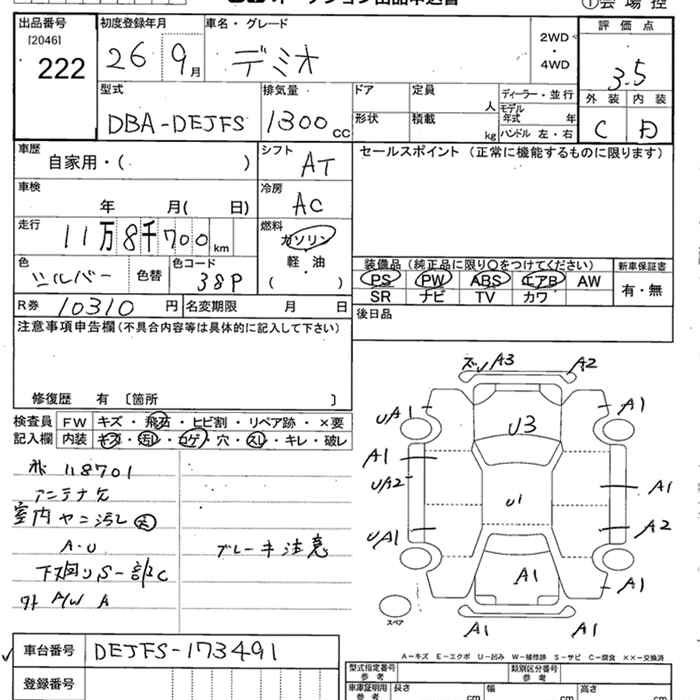 オークション出品申込書
①会場控
出品番号 初度登録年月 車名・グレード 評価点
[2046]
222 26 9月 デミオ 2WD・4WD 3.5
外装 内装
C D
型式 排気量 ドア 定員 人 ディーラー・並行
DBA-DEJFS 1300cc 形状 積載 kg モデル年式 年
ハンドル 左・右
車歴 自家用・( ) シフト AT セールスポイント (正常に機能するものに限ります)
車検 年 月( 日) 冷房 AC
走行 11万8千700km 燃料 ガソリン
軽・油
( )
色 シルバー 色替 色コード 38P
装備品 (純正品に限り○をつけてください) 新車保証書
PS PW ABS エアB AW 有・無
SR ナビ TV カワ
R券 10310円 名変期限 月 日 後日品
注意事項申告欄(不具合内容等は具体的に記入して下さい)
修復歴 有 〔箇所 〕
検査員 FW キズ・飛石・ヒビ割・リペア跡・×要
記入欄 内装 キズ・汚レ・コゲ・穴・スレ・キレ・破レ
118701
アンテナ欠
室内ヤニ汚レ
A-U
ブレーキ注意
下廻りS-部C
外 A/W A
A3 A2
UA1 A1
U3
A1
UA2 U1 A1
UA1 A2
A1 A1
A1 A1
スペア
A-キズ E-エクボ U-凹み W-補修跡 S-サビ C-腐食 ××-交換済
車台番号 DEJFS-173491
登録番号
型式指定番号 参考 類別区分番号 参考
車庫証明用 参考 長さ cm 幅 cm 高さ cm